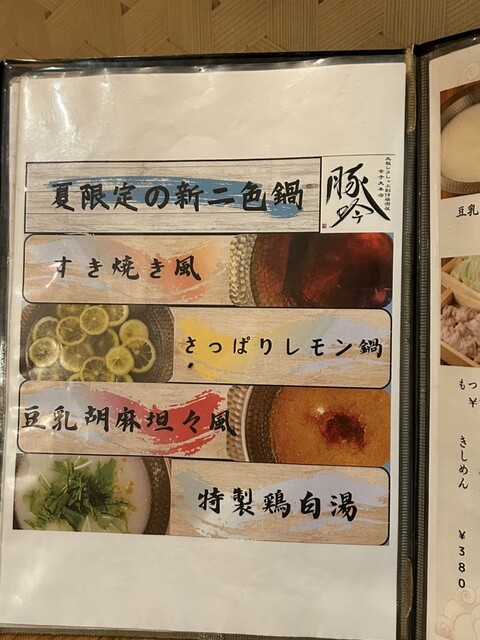 夏限定の新二色鍋
豚吟
すき焼き風
さっぱりレモン鍋
豆乳胡麻坦々風
特製鶏白湯
豆乳
もつ
¥
きしめん
¥380